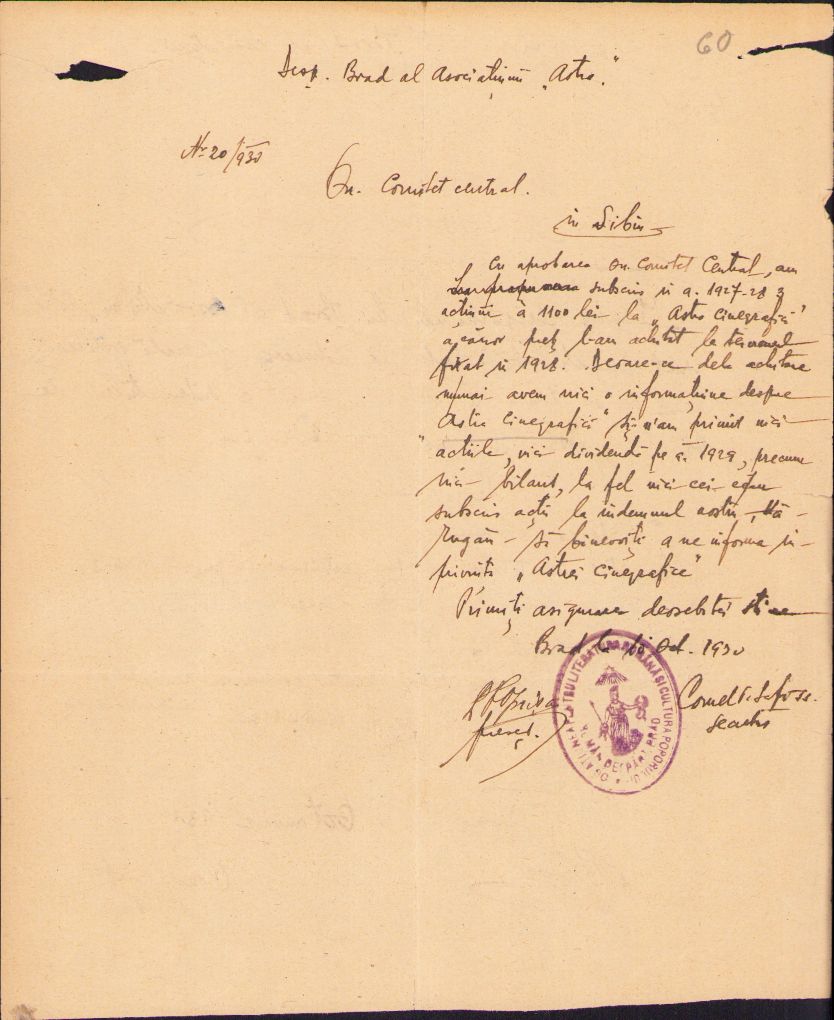 60
Desp. Brad al Asociațiunii „Astra."
Nr 20/930
On. Comitet central.
in Sibiu
Cu aprobarea On. Comitet Central, am
subscris in a. 1927-28 3
acțiuni à 1100 lei la „Astra Cinegrafică"
a căror preț l-am achitat la terminul
fixat in 1928. Deoare-ce dela achitare
numai avem nici o informațiune despre
„Astra Cinegrafică" și n'am primit nici
acțiile, nici dividendă pe a. 1929, precum
nici bilanț, la fel nici cei
subscris acții la indemnul nostru, Vă
Rugăm să binevoiți a ne informa in
privința „Astrei Cinegrafice"
Primiți asigurarea deosebitei
Brad la 10 Oct. 1930
președ.
Cornel
secretar
ASOCIAȚIUNEA PENTRU LITERATURA ROMÂNĂ ȘI CULTURA POPORULUI
ROMÂN DESPĂRȚ. BRAD